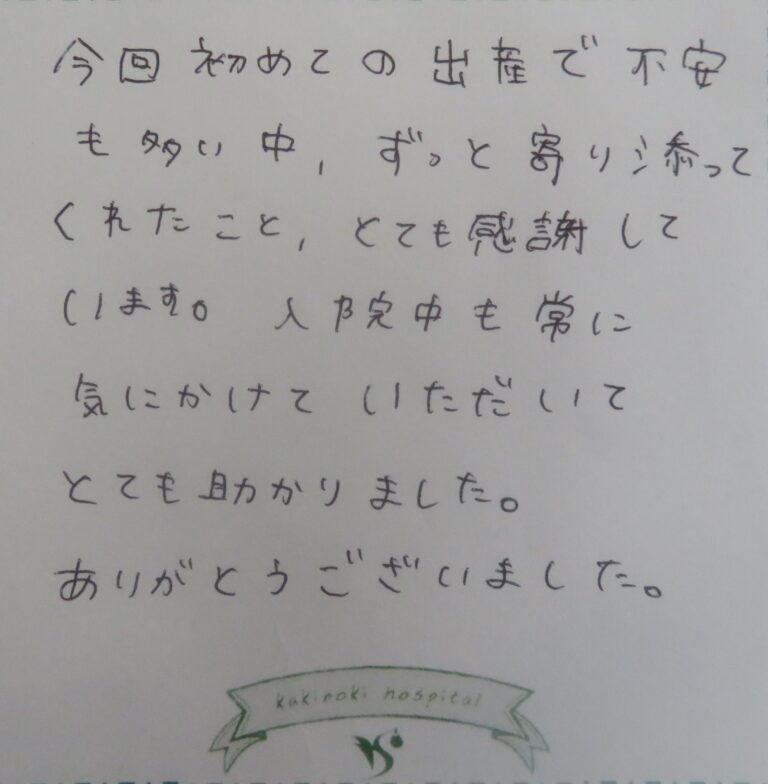 今回初めての出産で不安
も多い中，ずっと寄り添って
くれたこと，とても感謝して
います。入院中も常に
気にかけていただいて
とても助かりました。
ありがとうございました。
kakinoki hospital